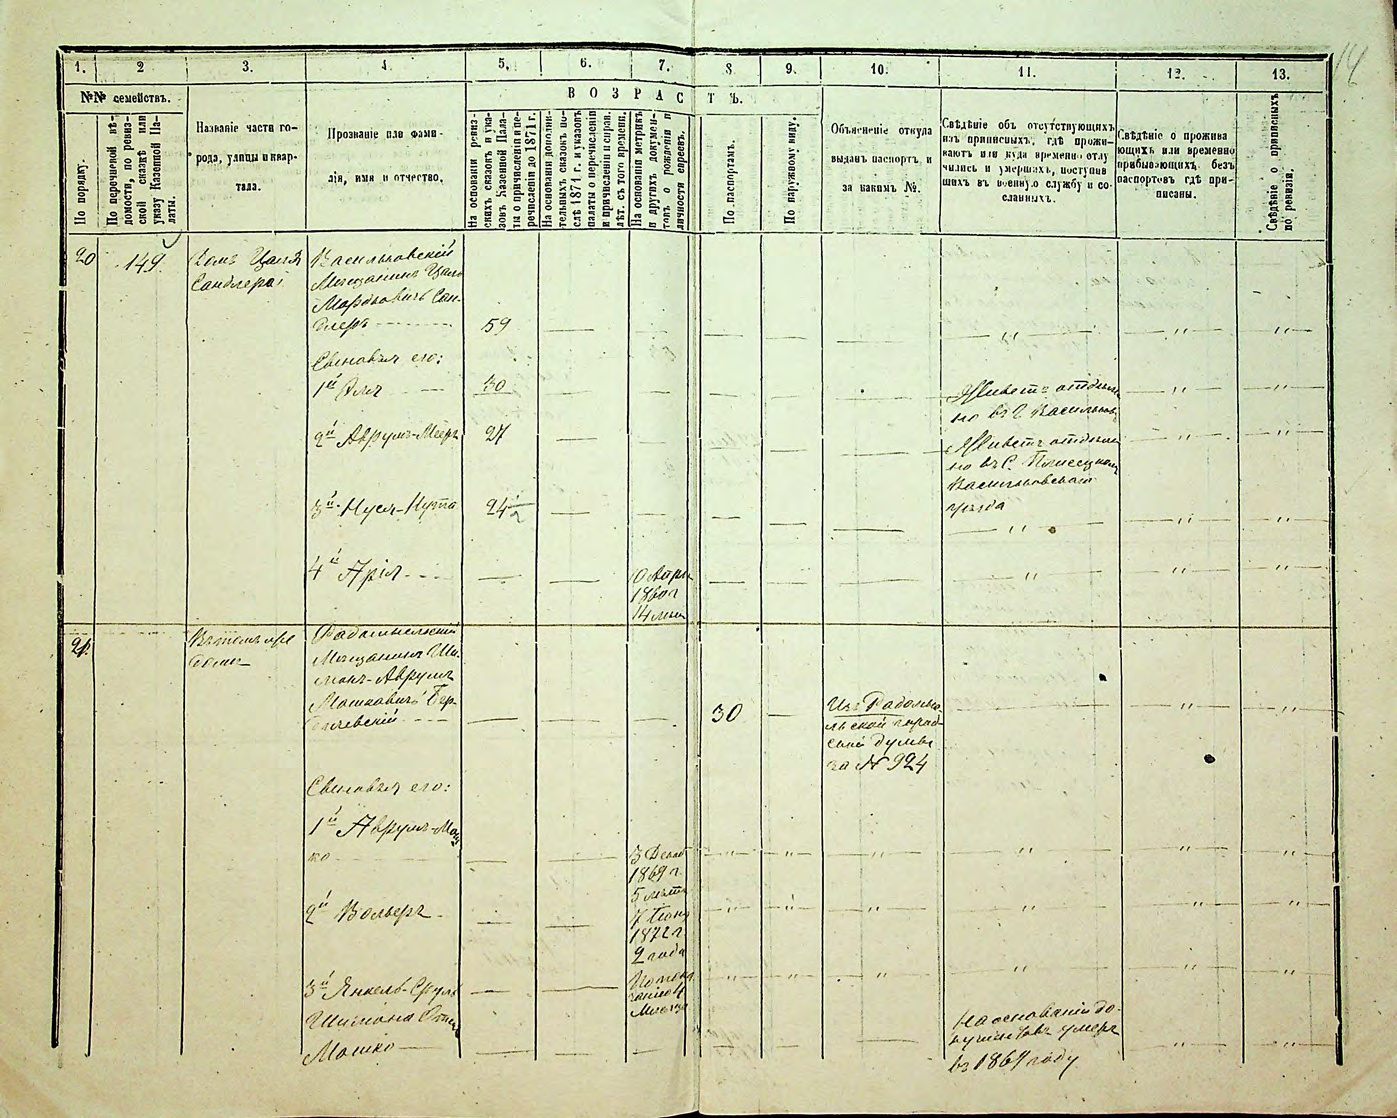 14
1. 2 3. 4 5. 6. 7. 8 9. 10. 11. 12. 13.
№№ семействъ.
ВОЗРАСТЪ.
По порядку.
По перечневой вѣ-
домости, по ревиз-
ской сказкѣ или
указу Казенной Па-
латы.
Названіе части го-
рода, улицы и квар-
тала.
Прозваніе или фами-
лія, имя и отчество.
На основаніи ревиз-
скихъ сказокъ и ука-
зовъ Казенной Пала-
ты о причисленіи и пе-
речисленіи до 1871 г.
На основаніи дополни-
тельныхъ сказокъ по-
слѣ 1871 г. и указовъ
палаты о перечисленіи
и причисленіи и справ.
лѣт. съ того времени.
На основаніи метрикъ
и другихъ докумен-
товъ о рожденіи и
личности евреевъ.
По паспортамъ.
По наружному виду.
Объясненіе откуда
выданъ паспортъ, и
за какимъ №.
Свѣдѣніе объ отсутствующихъ
изъ приписныхъ, гдѣ прожи-
ваютъ или куда временно отлу
чились и умершихъ, поступив
шихъ въ военную службу и со-
сланныхъ.
Свѣдѣніе о прожива
ющихъ или временно
прибывающихъ безъ
паспортовъ гдѣ при-
писаны.
Свѣдѣніе о приписныхъ
по ревизіи.
20 149.
Домъ Цаля
Сандлера
Васильковскій
Мѣщанинъ Цаль
Мордковичъ Сан-
длеръ 59
Сыновья его:
1й Эля 30
Живетъ отдѣль
но въ г. Васильковѣ
2й Аврумъ-Мееръ 27
Живетъ отдѣль
но въ с.
Васильковскаго
уѣзда
3й Нусл-Нута 24
4й Аріл
10 Апрѣл
1860 г
14 лѣтъ
21.
Въ томъ же
домѣ
Радомысльскій
Мѣщанинъ Ши-
монъ-Аврумъ
Мошковичъ Бер-
дичевскій 30
Изъ Радомы-
льской город-
ской думы
за № 924
Сыновья его:
1й Аврумъ-Мош
ко
3 Декаб
1869 г.
5 лѣтъ
2й Вольеръ
7 Іюня
1872 г
2 года
3й Янкель-Сруль
По пока
занію 4
Мѣсяца
Шимона Отецъ
Мошко
На основаніи до-
кументовъ умеръ
въ 1869 году